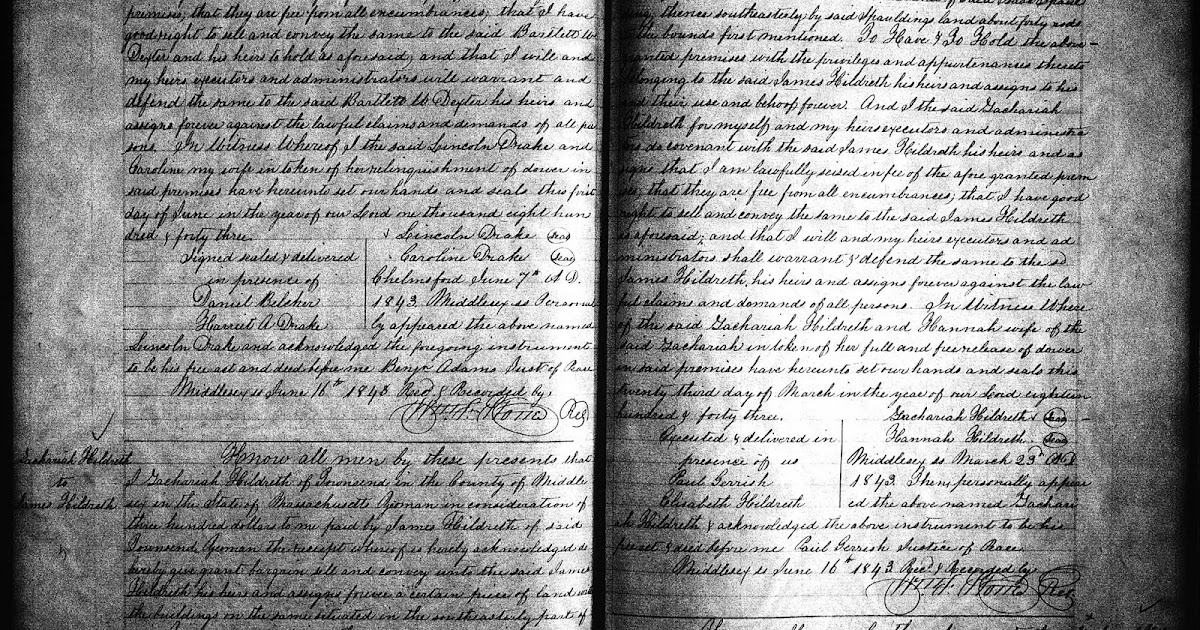 premises; that they are free from all encumbrances; that I have
good right to sell and convey the same to the said Bartlett W
Dexter and his heirs to hold as aforesaid; and that I will and
my heirs executors and administrators will warrant and
defend the same to the said Bartlett W Dexter his heirs and
assigns forever against the lawful claims and demands of all per
sons. In Witness Whereof I the said Lincoln Drake and
Caroline my wife in token of her relinquishment of dower in
said premises have hereunto set our hands and seals this first
day of June in the year of our Lord one thousand eight hun
dred & forty three. Lincoln Drake (Seal)
Signed sealed & delivered Caroline Drake (Seal)
in presence of Chelmsford June 7th A D.
Daniel Belcher 1843. Middlesex ss Personal
Harriet A Drake ly appeared the above named
Lincoln Drake and acknowledged the foregoing instrument
to be his free act and deed before me Benjn Adams Just of Peace
Middlesex ss June 16th 1843 Recd & Recorded by
Reg
Zachariah Hildreth
to
James Hildreth
Know all men by these presents that
I Zachariah Hildreth of Townsend in the County of Middle
sex in the State of Massachusetts Yeoman in consideration of
three hundred dollars to me paid by James Hildreth of said
Townsend Yeoman the receipt whereof is hereby acknowledged do
hereby give grant bargain sell and convey unto the said James
Hildreth his heirs and assigns forever a certain piece of land with
the buildings on the same situated in the southeasterly part of
thence southeasterly by said Spauldings land about forty rods
the bounds first mentioned. To Have & To Hold the above
granted premises with the privileges and appurtenances thereto
belonging to the said James Hildreth his heirs and assigns to his
and their use and behoof forever. And I the said Zachariah
Hildreth for myself and my heirs executors and administra
tors do covenant with the said James Hildreth his heirs and as
signs that I am lawfully seised in fee of the afore granted prem
ises; that they are free from all encumbrances; that I have good
right to sell and convey the same to the said James Hildreth
as aforesaid; and that I will and my heirs executors and ad
ministrators shall warrant & defend the same to the sd
James Hildreth, his heirs and assigns forever against the law
ful claims and demands of all persons. In Witness Where
of the said Zachariah Hildreth and Hannah wife of the
said Zachariah in token of her full and free release of dower
in said premises have hereunto set our hands and seals this
twenty third day of March in the year of our Lord eighteen
hundred & forty three. Zachariah Hildreth (Seal)
Executed & delivered in Hannah Hildreth (Seal)
presence of us Middlesex ss March 23d A D
Paul Gerrish 1843 Then personally appear
Elisabeth Hildreth ed the above named Zachari
ah Hildreth & acknowledged the above instrument to be his
free act & deed before me Paul Gerrish Justice of Peace
Middlesex ss June 16th 1843 Recd & Recorded by
Reg